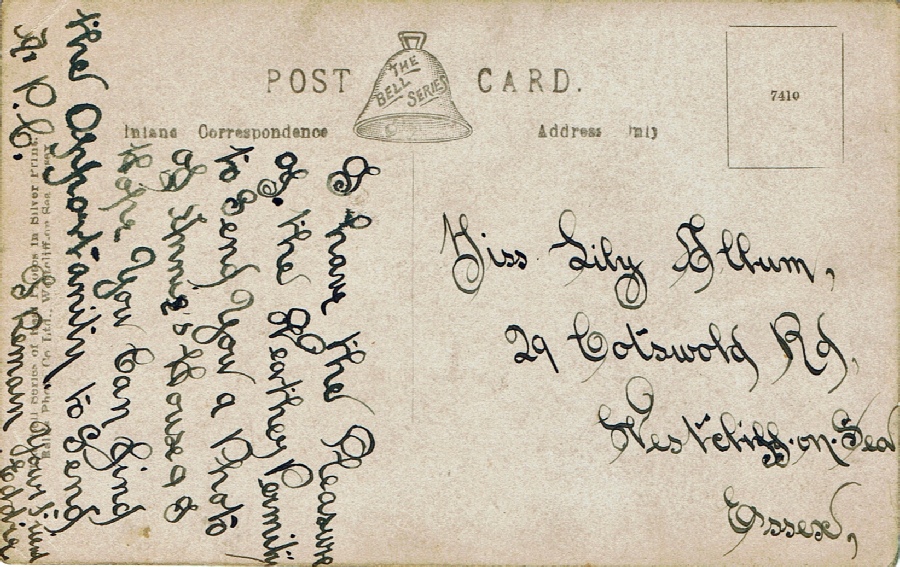 POST CARD.
THE BELL SERIES
7410
Inland Correspondence
Address Only
Miss Lily Allum,
29 Cotswold Rd,
Westcliff-on-Sea
Essex,
I have the Pleasure
of. the Weather Permits
to Send You a Photo
of House & I
hope You Can find
the Opportunity to Send
A P.C.
I Remain Your friend
Series of in Silver Print.
Ltd., Westcliff-on-Sea